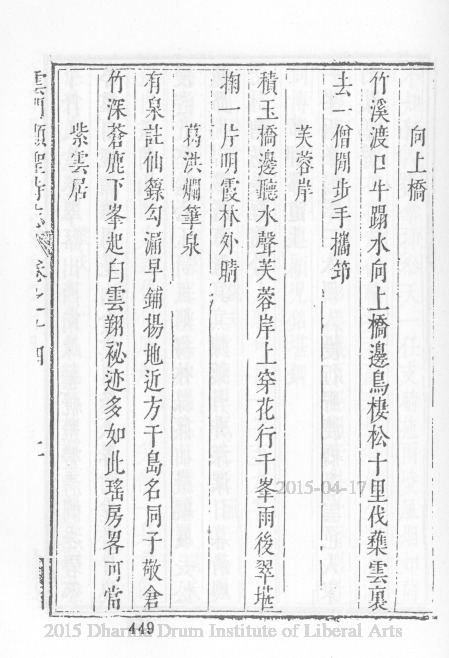 向上橋
竹溪渡口牛蹋水向上橋邊鳥棲松十里伐藥雲裏
去一僧閒步手攜笻
芙蓉岸
積玉橋邊聽水聲芙蓉岸上穿花行千峯雨後翠堪
掬一片明霞林外晴
葛洪爛筆泉
有泉註仙籙勾漏早鋪揚地近方干島名同子敬倉
竹深蒼鹿下峯起白雲翔祕迹多如此瑤房畧可當
紫雲居
雲門顯聖寺志 卷之十四
449
2015-04-17
2015 Dharma Drum Institute of Liberal Arts